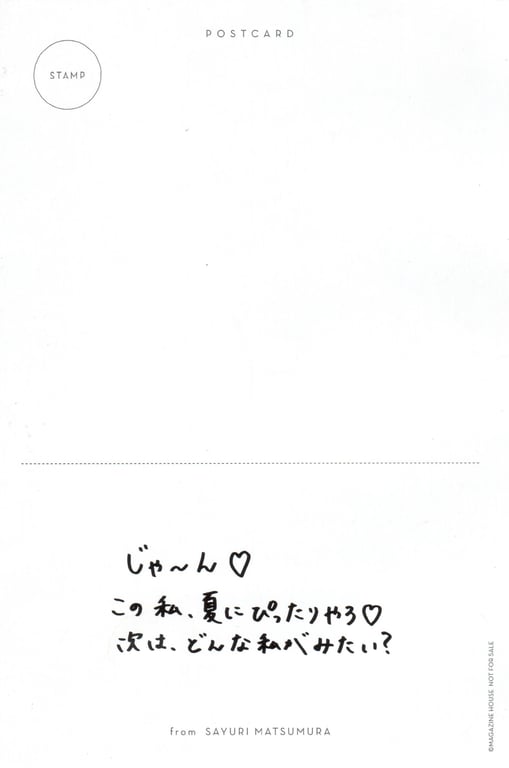 POSTCARD
STAMP
じゃ～ん♡
この私、夏にぴったりやろ♡
次は、どんな私がみたい?
from SAYURI MATSUMURA
©MAGAZINE HOUSE NOT FOR SALE